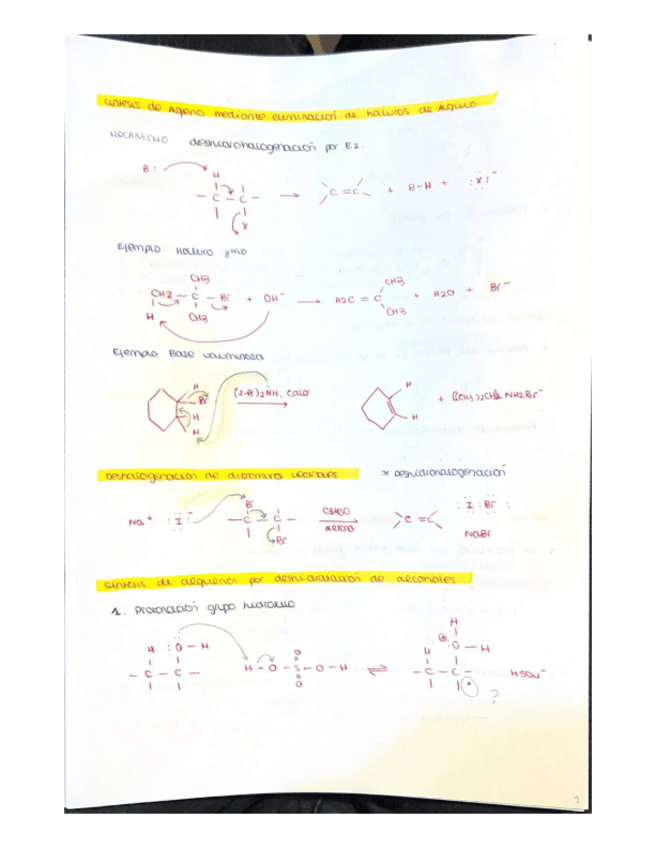 síntesis de Aqeno mediante eliminación de haluros de Alquilo
MECANISMO deshidrohalogenación por E2.
B: H
- C - C - → C = C + B-H + :X:⁻
X
Ejemplo Haluro 3ario
CH3 CH3
CH2 - C - Br + OH⁻ → H2C = C + H2O + Br⁻
H CH3 CH3
Ejemplo Base voluminosa
H
Br (i-Pr)2NH, calor H
H + [(CH3)2CH]2 NH2Br⁻
H H
Deshalogenación de dibromuros vecinales * Deshidrohalogenación
Br : I : Br :
Na⁺ :I:⁻ - C - C - → C = C
Br acetona NaBr
síntesis de alquenos por deshidratación de alcoholes
1. Protonación grupo hidroxilo
H
H :O - H O ⊕ :O - H
- C - C - H - O - S - O - H ⇌ H
O - C - C - HSO4⁻
?
1